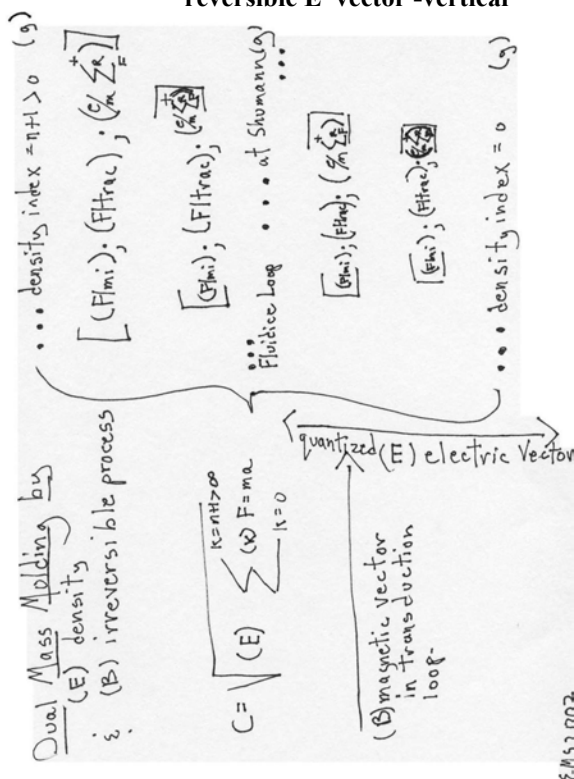 reversible E vector -vertical
Dual Mass Molding by
(E) density
& (B) irreversible process
C = √ (E) ∑ (k) F=ma
k=n+1>∞
k=0
(B) magnetic vector
in transduction
loop-
quantized (E) electric Vector
... density index = n+1>0 (g)
[(F/mi); (F/trac); (c/m ∑ R F +)]
[(F/mi); (F/trac); (c/m ∑ R F +)]
... Fluidice Loop .... at Shumann(g) ...
[(F/mi); (F/trac); (c/m ∑ R F +)]
[(F/mi); (F/trac); (c/m ∑ R F +)]
... density index = 0 (g)